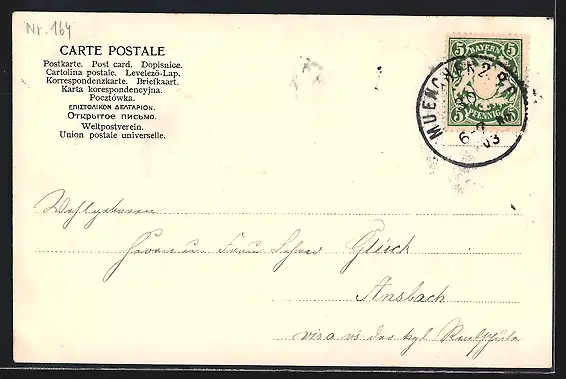 Nr. 164
CARTE POSTALE
Postkarte. Post card. Dopisnice.
Cartolina postale. Levelező-Lap.
Korrespondenzkarte. Briefkaart.
Karta korespondencyjna.
Pocztówka.
ΕΠΙΣΤΟΛΙΚΟΝ ΔΕΛΤΑΡΙΟΝ.
Открытое письмо.
Weltpostverein.
Union postale universelle.
5 BAYERN 5
5 PFENNIG 5
MUENCHEN 2. B.P.
6-7
03
Wohlgeboren
Herrn u. Frau Glück
Ansbach
vis a vis der kgl.